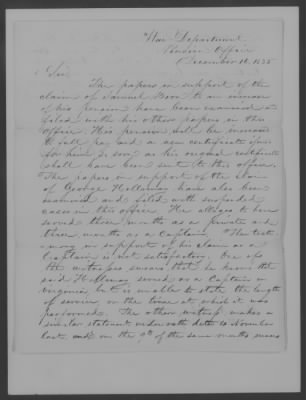 War Department
Pension Office
December 16, 1835
Sir
The papers in support of the
claim of Samuel to an increase
of his pension have been examined &
filed with his other papers in this
office. His pension will be increased
to full pay and a new certificate
for him so soon as his original certificate
shall have been sent to this office.
The papers in support of the claim
of George Holloway have also been
examined and filed with suspended
cases in this office. He alleges to have
served three months as a private and
three months as a Captain. The test-
imony in support of his claim as a
Captain is not satisfactory. One of
the witnesses swears that he knows the
said Holloway served as a Captain in
Virginia but is unable to state the length
of service or the time at which it was
performed. The other witness makes a
similar statement under oath dated 10 November
last, and on the 9th of the same month swears